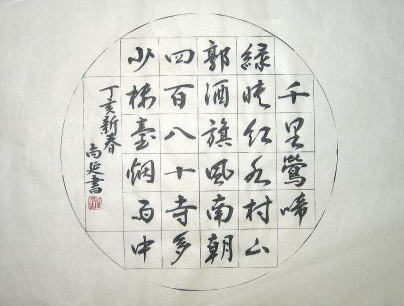 千里鶯啼
綠映红水村山
郭酒旗風南朝
四百八十寺多
少楼臺烟雨中
丁亥新春
尚延書